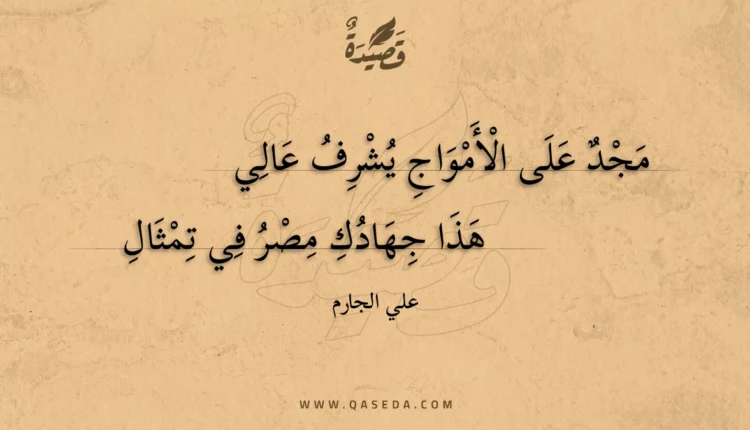 قَصِيدَةٌ
مَجْدٌ عَلَى الْأَمْوَاجِ يُشْرِفُ عَالِي
هَذَا جِهَادُكِ مِصْرُ فِي تِمْثَالِ
علي الجارم
WWW.QASEDA.COM